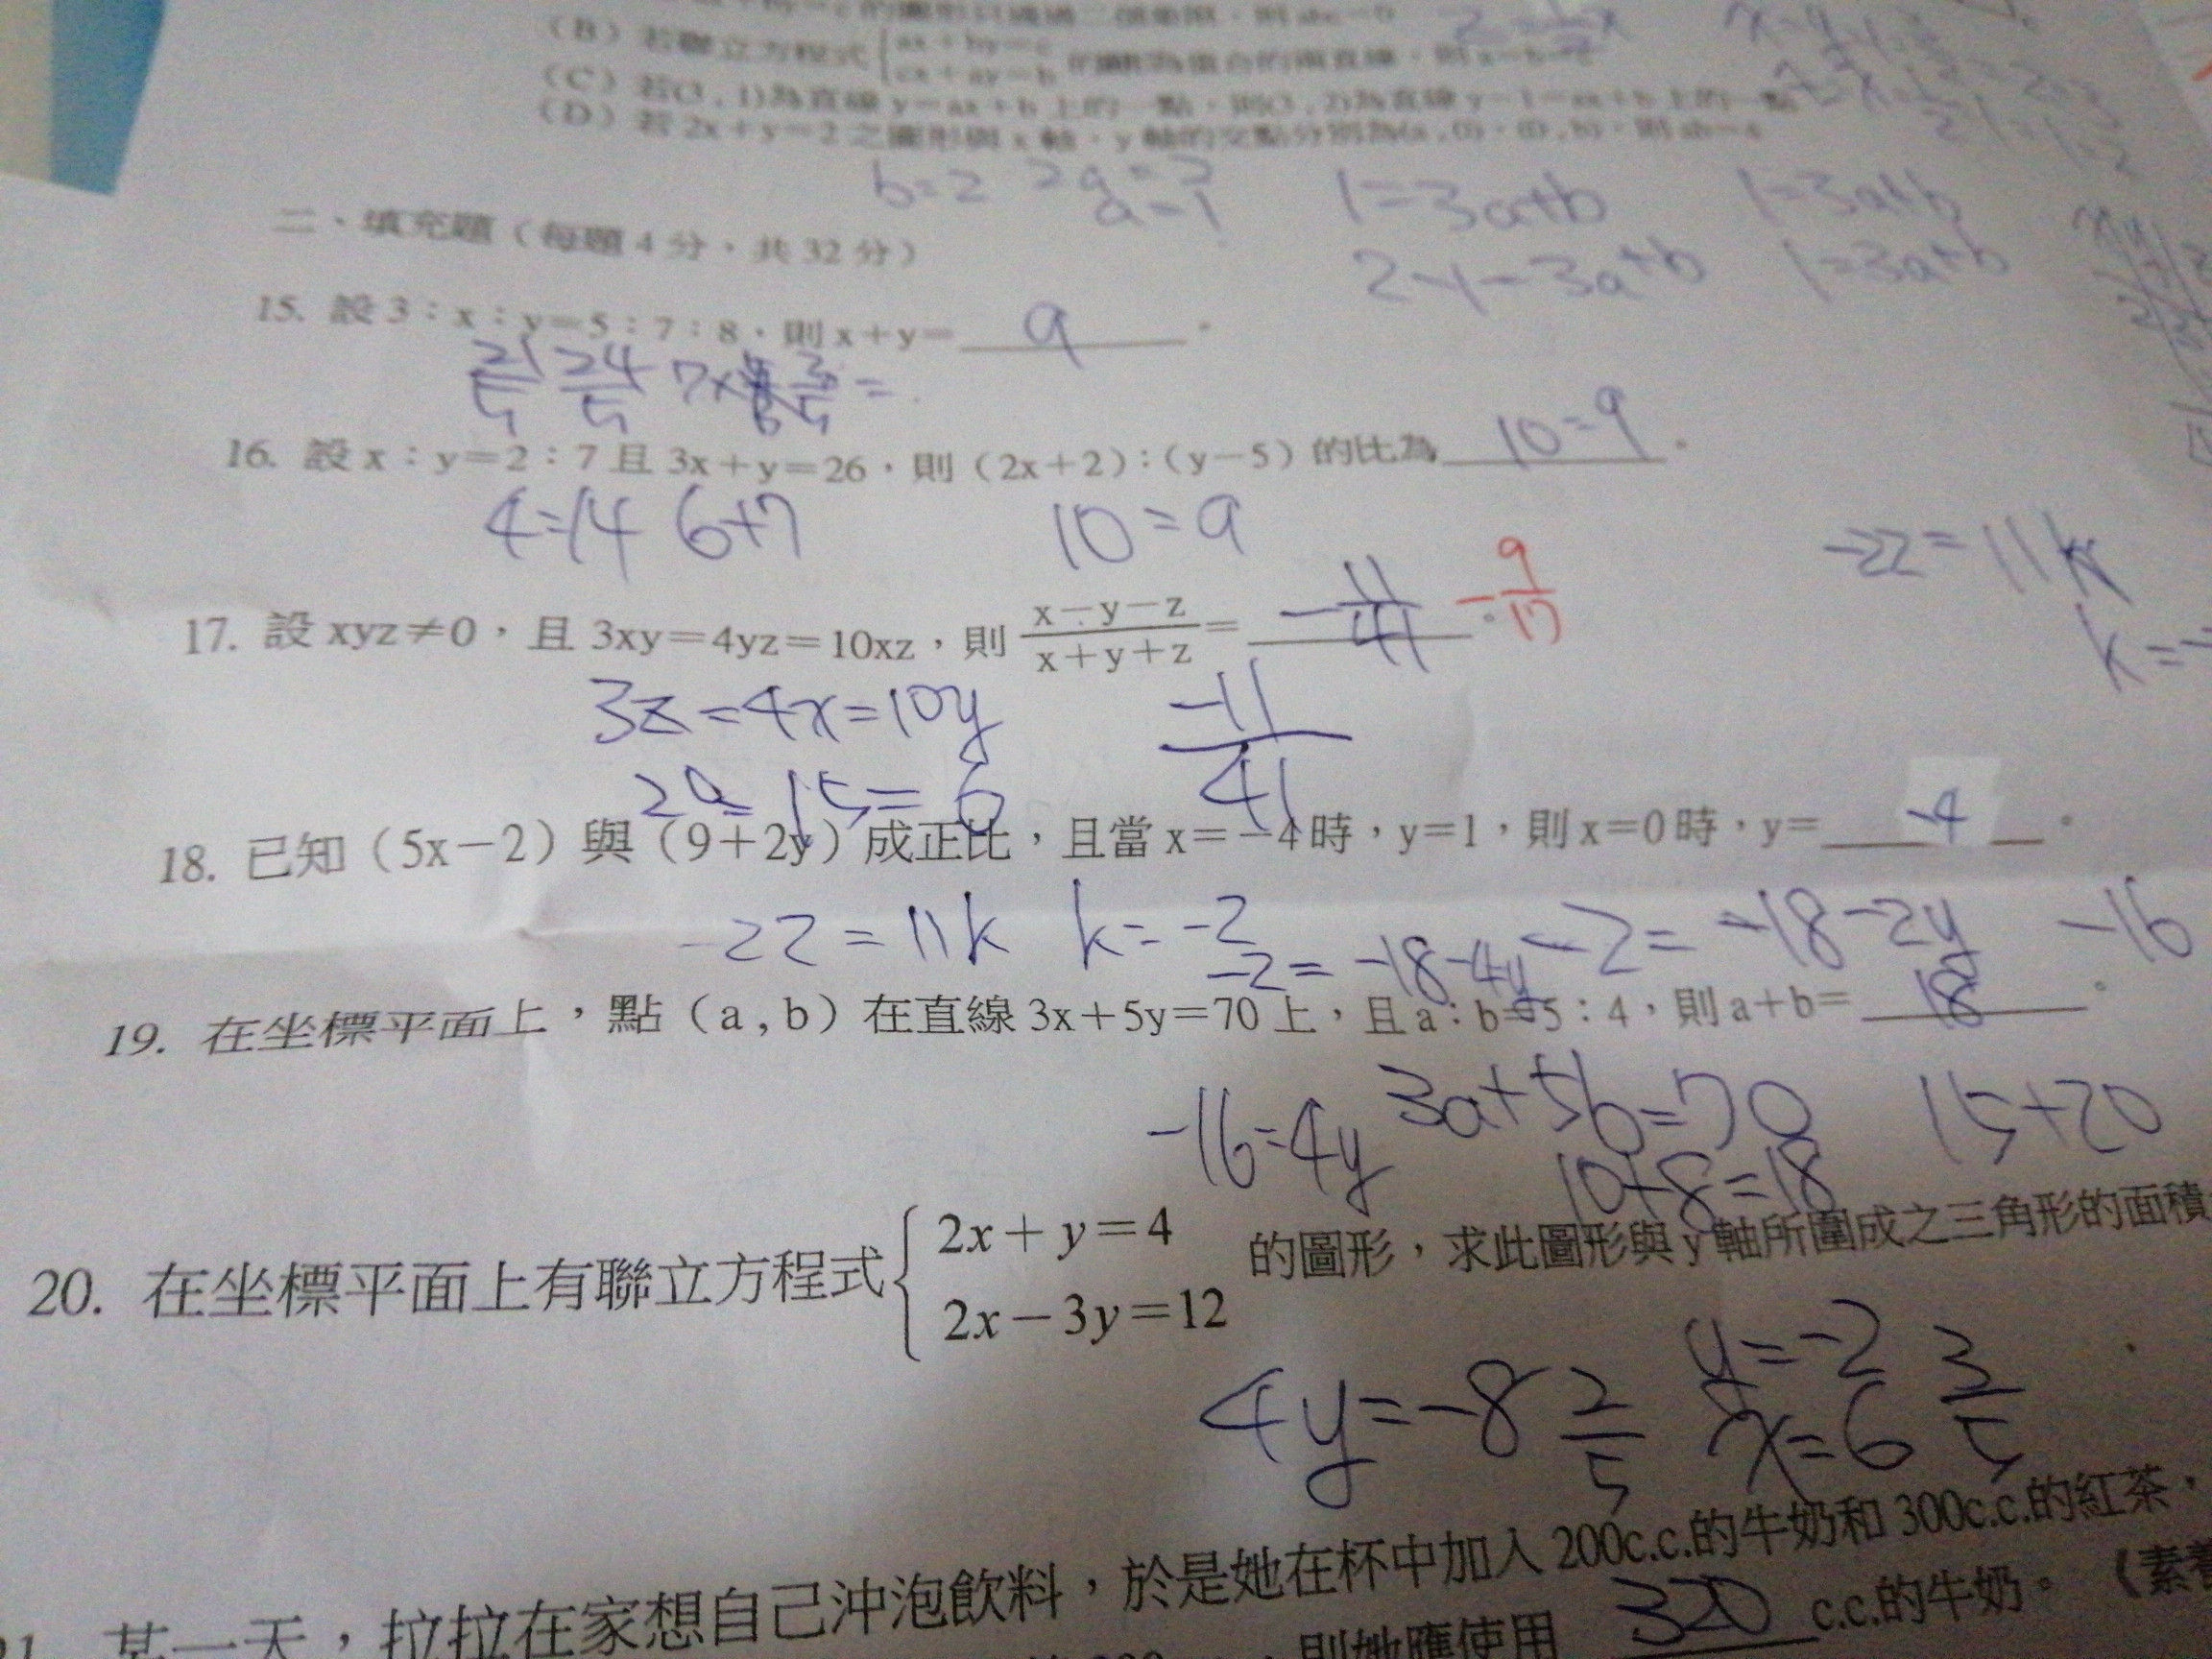 (B) 若聯立方程式{ax+by=c cx+ay=b 的圖形為重合的兩直線,則a=b=c
(C) 若(3,1)為直線 y=ax+b 上的一點,則(3,2)為直線 y-1=ax+b 上的一點
(D) 若 2x+y=2 之圖形與 x 軸、y 軸的交點分別為(a,0)、(0,b),則 ab=
b=2 2a=2 1=3a+b 1=3a+b
a=1 2-1=3a+b 1=3a+b
二、填充題(每題4分,共32分)
15. 設3:x:y=5:7:8,則x+y= 9 。
21/5 24/5 7× 3/5 =
16. 設x:y=2:7且3x+y=26,則(2x+2):(y-5)的比為 10=9 。
4=14 6+7 10=9
-22=11k
k=-
17. 設xyz≠0,且3xy=4yz=10xz,則 x-y-z/x+y+z = -11/41 。 -9/17
3z=4x=10y -11/41
20=15=6
18. 已知(5x-2)與(9+2y)成正比,且當x=-4時,y=1,則x=0時,y= -4 。
-22=11k k=-2 -2=-18-4y -2=-18-2y -16
19. 在坐標平面上,點(a,b)在直線3x+5y=70上,且a:b=5:4,則a+b= 18 。
-16=4y 3a+5b=70 15+20
10+8=18
20. 在坐標平面上有聯立方程式{2x+y=4 2x-3y=12 的圖形,求此圖形與y軸所圍成之三角形的面積
4y=-8 2/5 y=-2 3/5
x=6
某一天,拉拉在家想自己沖泡飲料,於是她在杯中加入200c.c.的牛奶和300c.c.的紅茶,
則她應使用 320 c.c.的牛奶。《素養